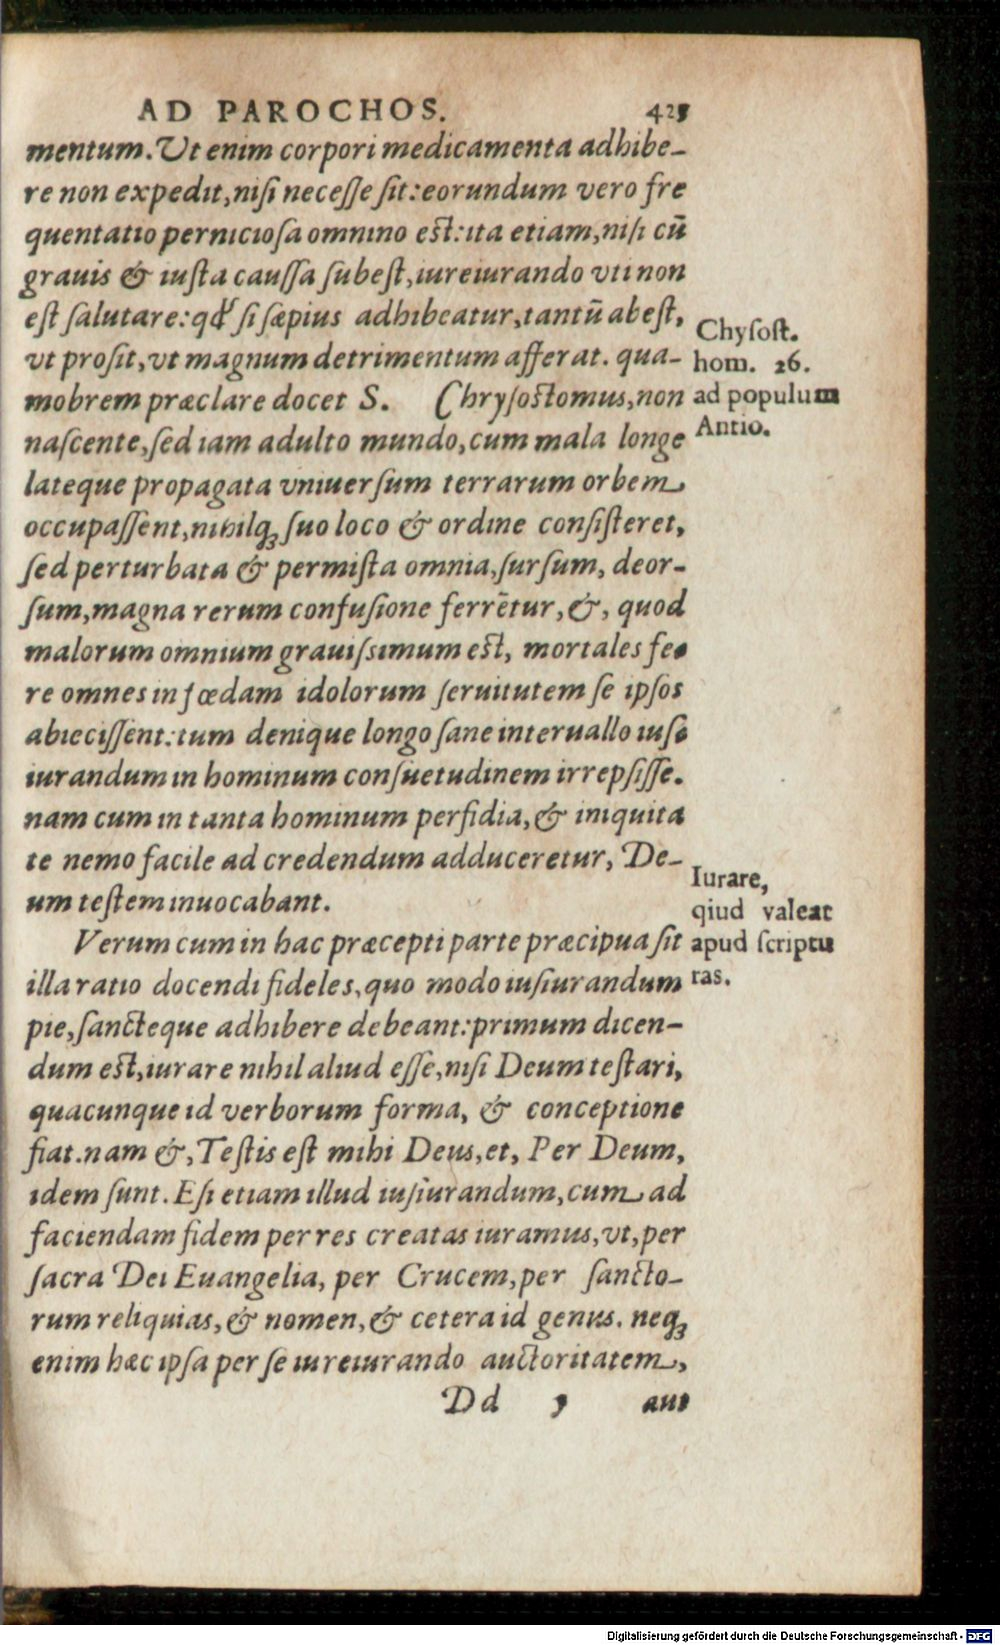 AD PAROCHOS. 425
mentum. Ut enim corpori medicamenta adhibe-
re non expedit, nisi necesse sit: eorundum vero fre
quentatio perniciosa omnino est: ita etiam, nisi cū
grauis & iusta caussa subest, iureiurando vti non
est salutare: qđ si sæpius adhibeatur, tantū abest,
vt prosit, vt magnum detrimentum afferat. qua-
mobrem præclare docet S. Chrysostomus, non
nascente, sed iam adulto mundo, cum mala longe
lateque propagata vniuersum terrarum orbem
occupassent, nihilq; suo loco & ordine consisteret,
sed perturbata & permista omnia, sursum, deor-
sum, magna rerum confusione ferrētur, &, quod
malorum omnium grauissimum est, mortales fe-
re omnes in fœdam idolorum seruitutem se ipsos
abiecissent: tum denique longo sane interuallo ius-
iurandum in hominum consuetudinem irrepsisse.
nam cum in tanta hominum perfidia, & iniquita
te nemo facile ad credendum adduceretur, De-
um testem inuocabant.
Verum cum in hac præcepti parte præcipua sit
illa ratio docendi fideles, quo modo iusiurandum
pie, sancteque adhibere debeant: primum dicen-
dum est, iurare nihil aliud esse, nisi Deum testari,
quacunque id verborum forma, & conceptione
fiat. nam &, Testis est mihi Deus, et, Per Deum,
idem sunt. Est etiam illud iusiurandum, cum ad
faciendam fidem per res creatas iuramus, vt, per
sacra Dei Euangelia, per Crucem, per sancto-
rum reliquias, & nomen, & cetera id genus. neq;
enim hæc ipsa per se iureiurando auctoritatem,
Dd 5 aut
Chysost.
hom. 26.
ad populum
Antio.
Iurare,
qiud valeat
apud scriptu
ras.
Digitalisierung gefördert durch die Deutsche Forschungsgemeinschaft - DFG